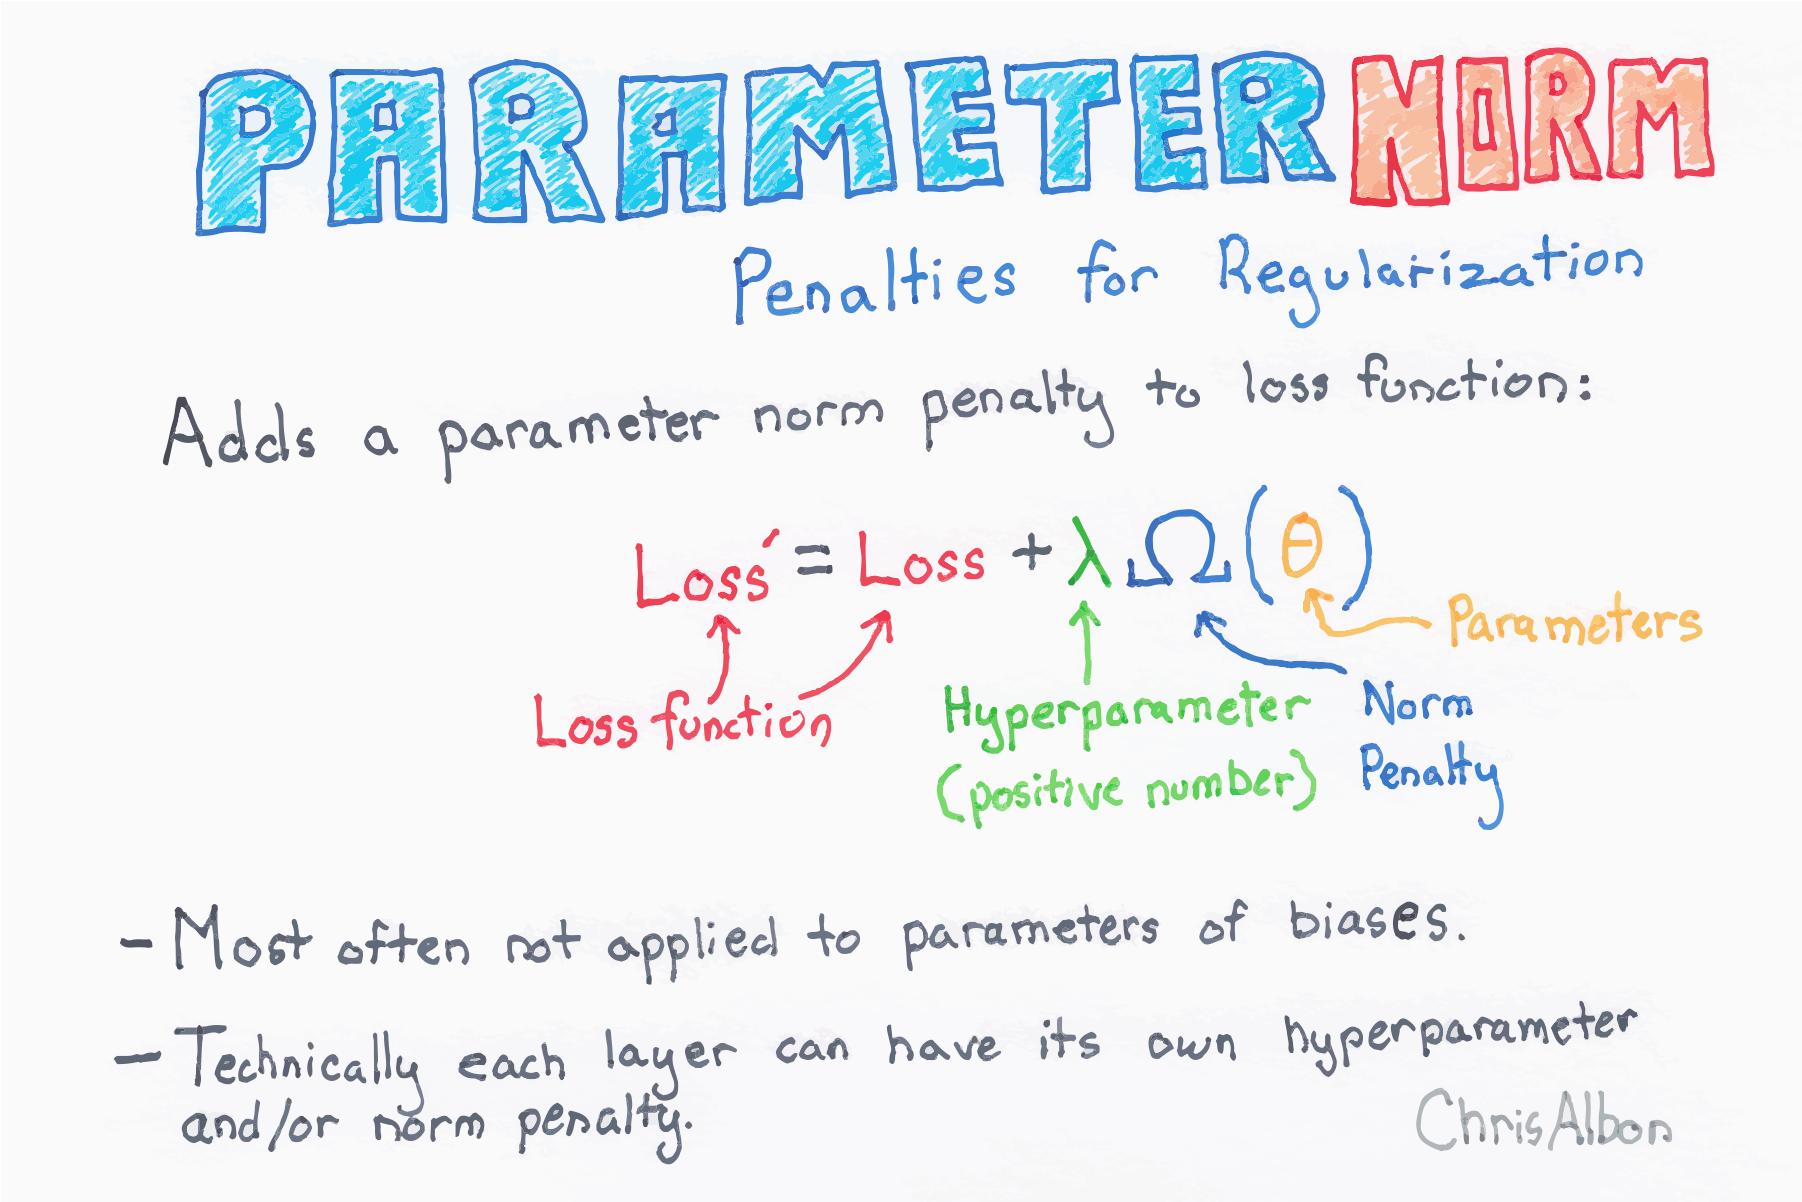 PARAMETER NORM
Penalties for Regularization
Adds a parameter norm penalty to loss function:
Loss′ = Loss + λΩ(θ)
Parameters
Loss function
Hyperparameter
(positive number)
Norm
Penalty
- Most often not applied to parameters of biases.
- Technically each layer can have its own hyperparameter
and/or norm penalty.
ChrisAlbon